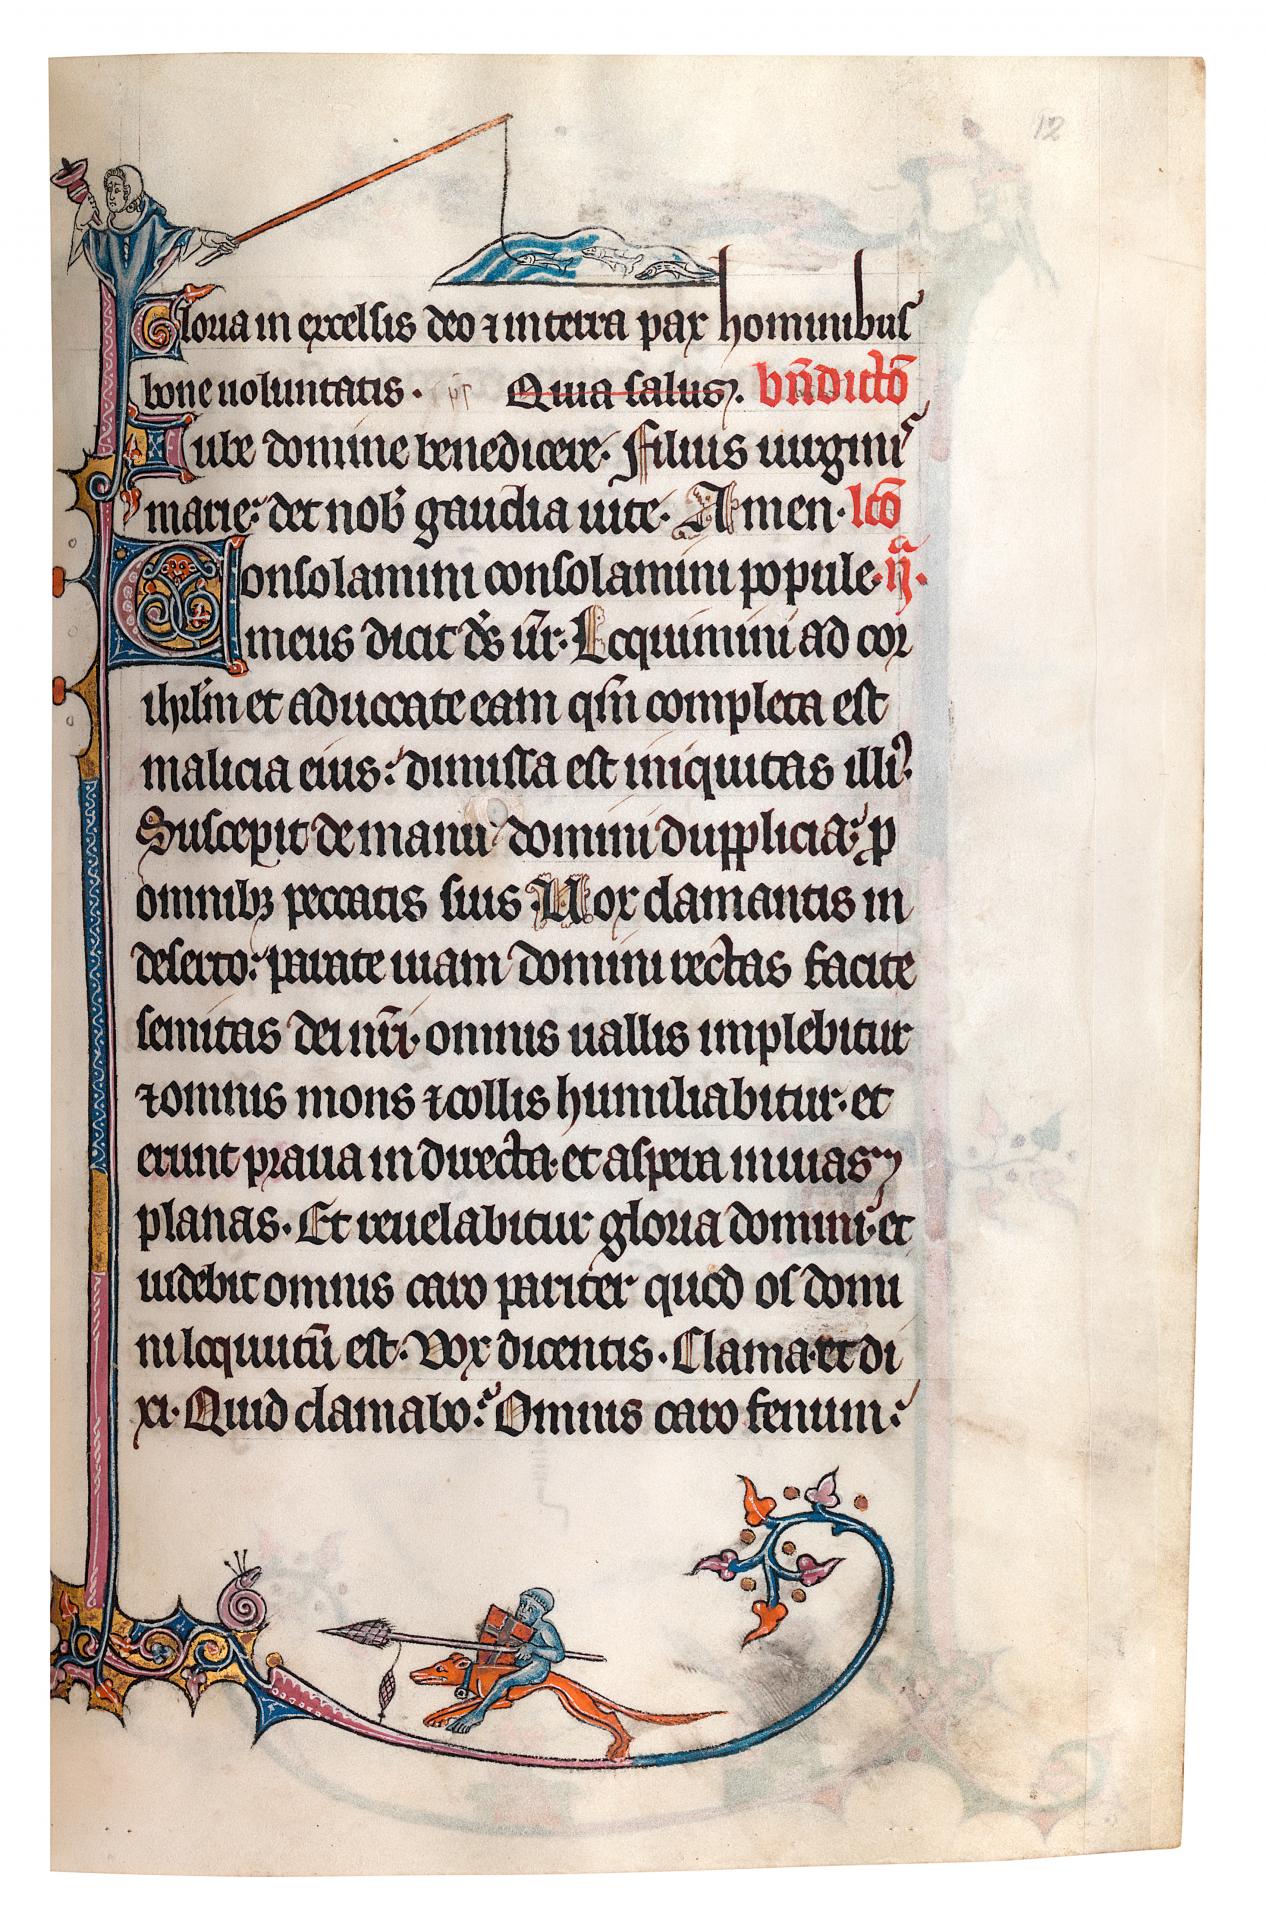 12
Gloria in excelsis deo ⁊ in terra pax hominibus
bone uoluntatis. ps Quia salus. bn̄dictō
Iube domine benedicere. Filius uirgini᷒
marie: det nob̄ gaudia uite. Amen. lcō
Consolamini consolamini popule. ij.ª
meus dicit ds̄ ur̄. Loquimini ad cor
ihrlm̄ et aduocate eam qm̄ completa est
malicia eius: dimissa est iniquitas illiꝰ.
Suscepit de manu domini dupplicia: ꝑ
omnibꝫ peccatis suis. Uox clamantis in
deserto: parate uiam domini rectas facite
semitas dei nr̄i. omnis uallis implebitur
⁊ omnis mons ⁊ collis humiliabitur. et
erunt praua in directa. et aspera in uias
planas. Et reuelabitur gloria domini. et
uidebit omnis caro pariter quod os domi
ni loquutū est. Vox dicentis. Clama. et di
xi. Quid clamabo: Omnis caro fenum: